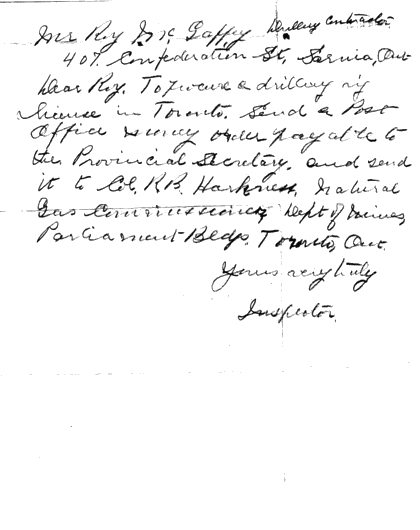 Mr Roy Mc Gaffey Drilling Contractor,
407 Confederation St, Sarnia, Ont
Dear Roy. To procure a drilling rig
license in Toronto. Send a Post
Office money order payable to
the Provincial Secretary. and send
it to Col. R.B. Harkness, Natural
Gas Commissioner, Dept of Mines,
Parliament Bldgs. Toronto, Ont.
Yours very truly
Inspector